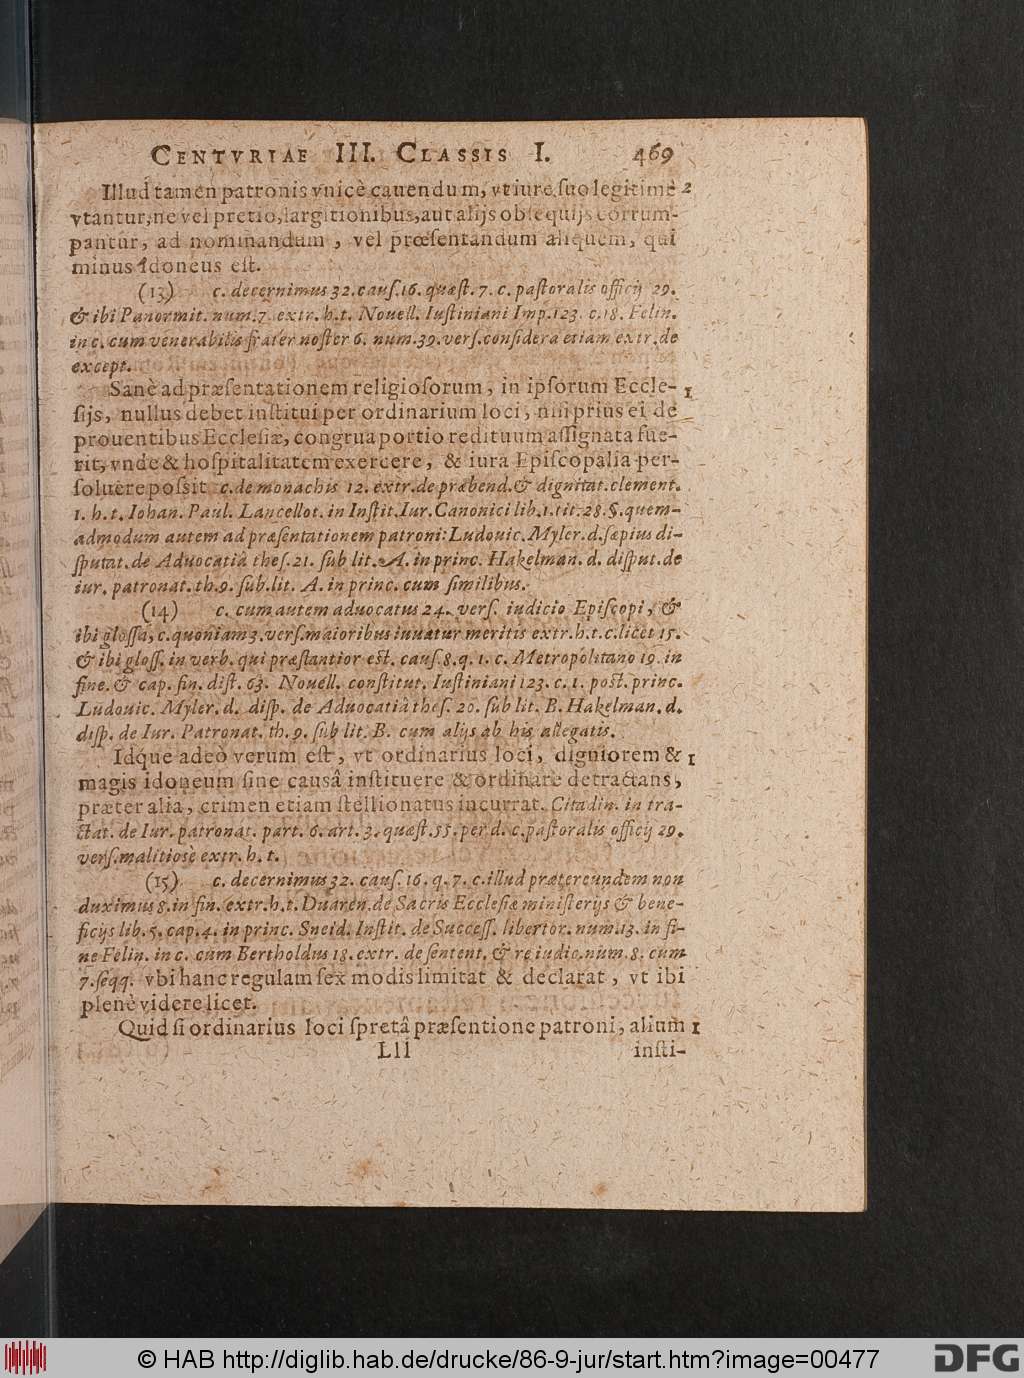 CENTVRIAE III. CLASSIS I. 469
Illud tamen patronis vnicè cauendum, vt iure suo legitimè 2
vtantur, ne vel pretio, largitionibus, aut alijs obsequijs corrum-
pantur, ad nominandum, vel præsentandum aliquem, qui
minus idoneus est.
(13) c. decernimus 32. caus. 16. quæst. 7. c. pastoralis officij 29.
& ibi Panormit. num. 7. extr. h. t. Nouell. Iustiniani Imp. 123. c. 18. Felin.
in c. cum venerabilis frater noster 6. num. 39. vers. considera etiam extr. de
except.
Sanè ad præsentationem religiosorum, in ipsorum Eccle- 1
sijs, nullus debet institui per ordinarium loci, nisi prius ei de
prouentibus Ecclesiæ, congrua portio redituum assignata fue-
rit, vnde & hospitalitatem exercere, & iura Episcopalia per-
soluere possit c. de monachis 12. extr. de præbend. & dignitat. clement.
1. h. t. Iohan. Paul. Lancellot. in Instit. Iur. Canonici lib. 1. tit. 28. §. quem-
admodum autem ad præsentationem patroni: Ludouic. Myler. d. sæpius di-
sputat. de Aduocatiâ thes. 21. sub lit. A. in princ. Hakelman. d. disput. de
iur. patronat. th. 9. sub. lit. A. in princ. cum similibus.
(14) c. cum autem aduocatus 24. vers. iudicio Episcopi, &
ibi glossa, c. quoniam 3. vers. maioribus iuuatur meritis extr. h. t. c. licet 15.
& ibi gloss. in verb. qui præstantior est. caus. 8. q. 1. c. Metropolitano 19. in
fine. & cap. fin. dist. 63. Nouell. constitut. Iustiniani 123. c. 1. post. princ.
Ludouic. Myler. d. disp. de Aduocatiâ thes. 20. sub lit. B. Hakelman. d.
disp. de Iur. Patronat. th. 9. sub lit. B. cum alijs ab his allegatis.
Idque adeò verum est, vt ordinarius loci, digniorem & 1
magis idoneum sine causâ instituere & ordinare detractans,
præter alia, crimen etiam stellionatus incurrat. Citadin. in tra-
ctat. de Iur. patronat. part. 6. art. 3. quæst. 55. per d. c. pastoralis officij 29.
vers. malitiosè extr. h. t.
(15) c. decernimus 32. caus. 16. q. 7. c. illud prætereundem non
duximus 8. in fin. extr. h. t. Duaren. de Sacris Ecclesiæ ministerijs & bene-
ficijs lib. 5. cap. 4. in princ. Sneid. Instit. de Success. libertor. num. 13. in fi-
ne Felin. in c. cum Bertholdus 18. extr. de sentent. & re iudic. num. 8. cum
7. seqq. vbi hanc regulam sex modis limitat & declarat, vt ibi
plenè videre licet.
Quid si ordinarius loci spretâ præsentione patroni, alium 1
Lll insti-
© HAB http://diglib.hab.de/drucke/86-9-jur/start.htm?image=00477
DFG